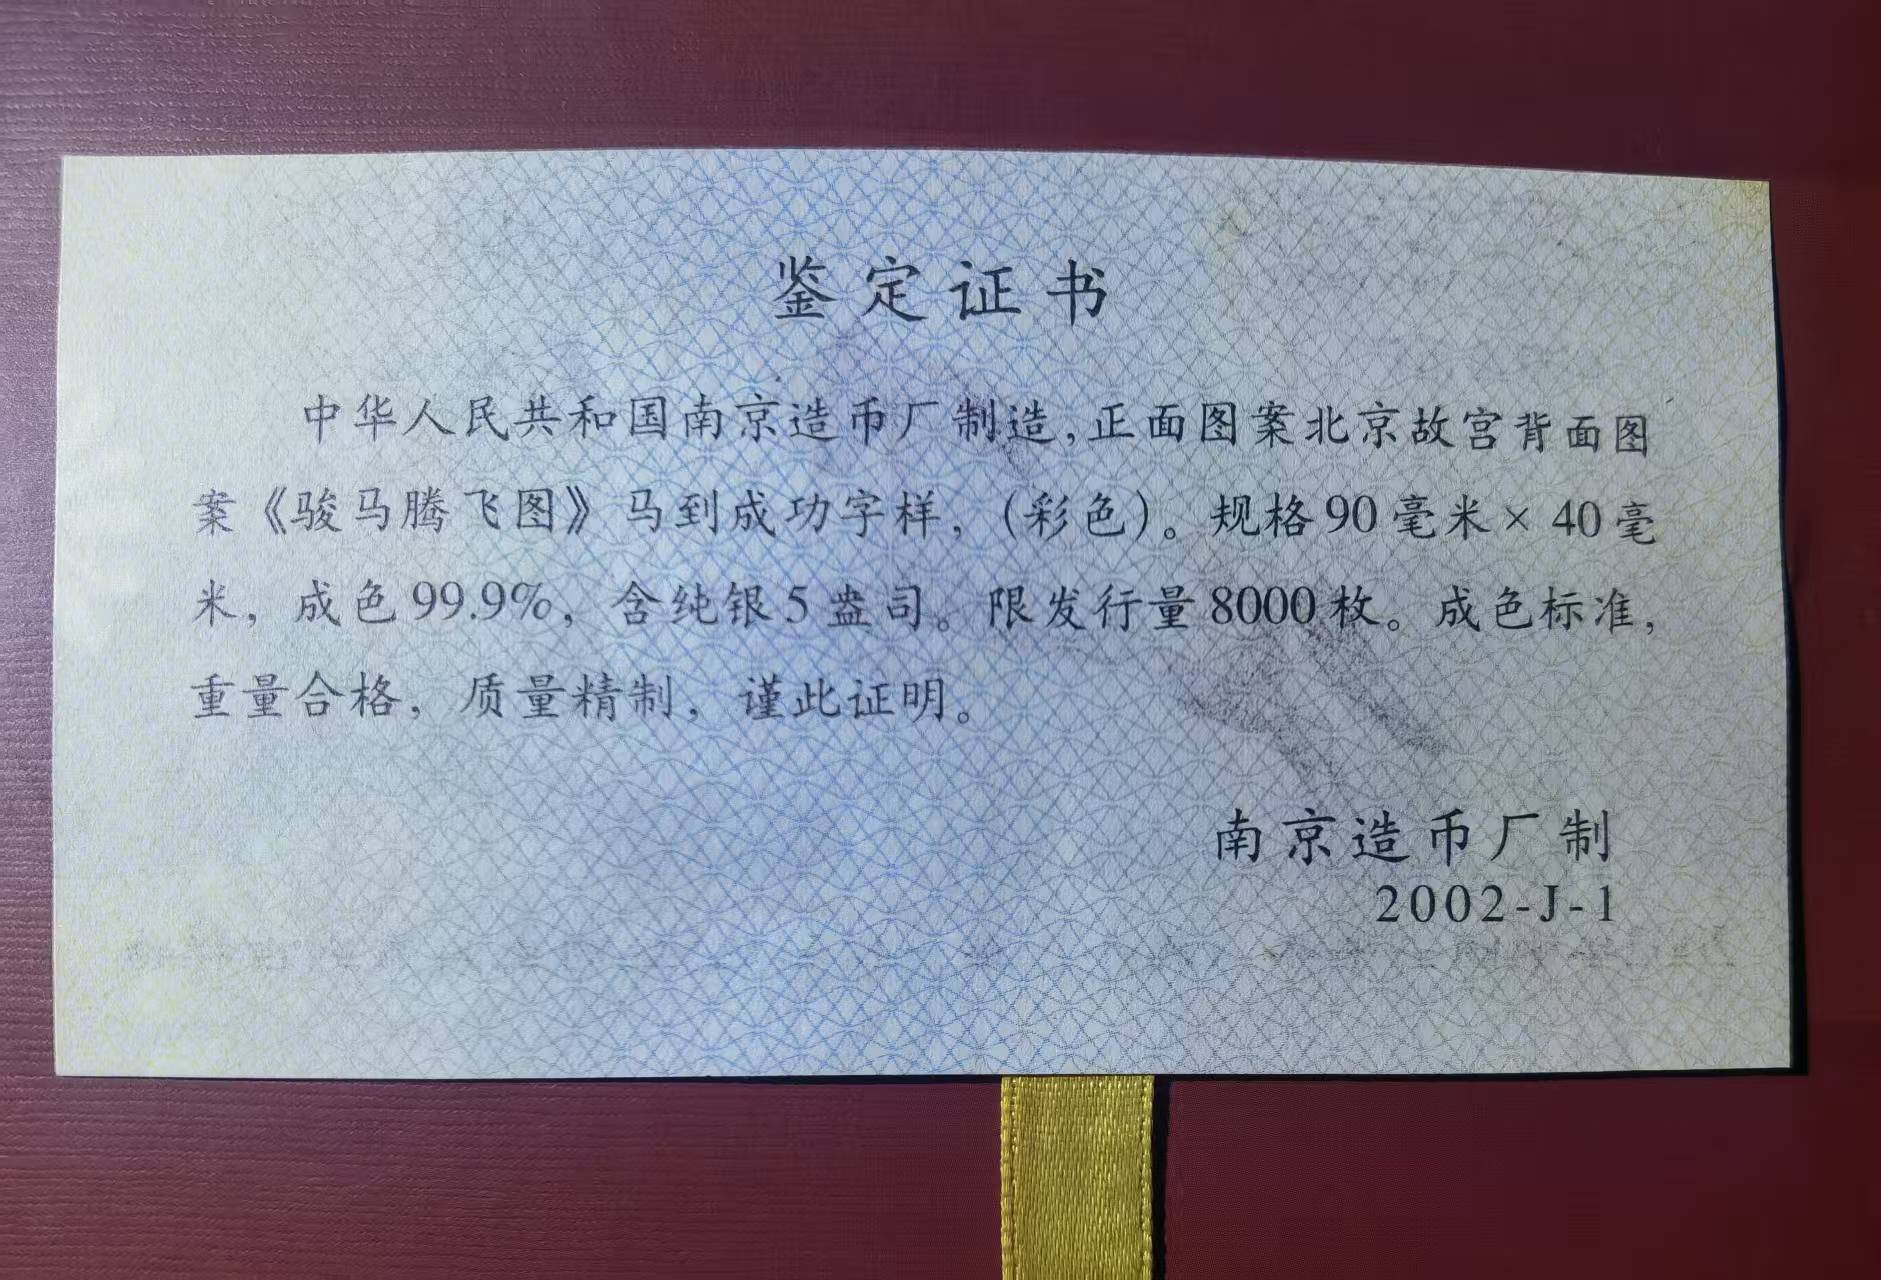 鉴定证书
中华人民共和国南京造币厂制造,正面图案北京故宫背面图
案《骏马腾飞图》马到成功字样,(彩色)。规格90毫米×40毫
米,成色99.9%,含纯银5盎司。限发行量8000枚。成色标准,
重量合格,质量精制,谨此证明。
南京造币厂制
2002-J-1